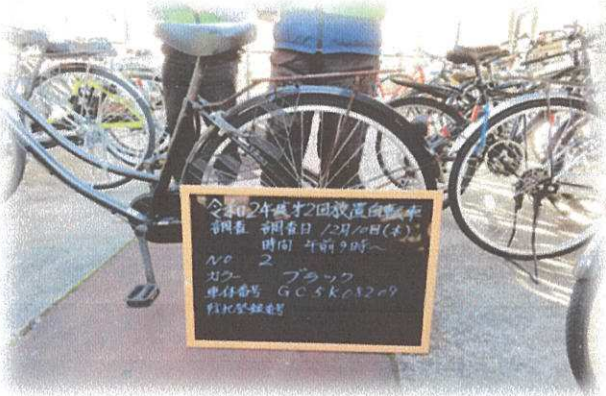 令和2年度第2回放置自転車
調査 調査日 12月10日(木)
時間 午前9時~
No 2
カラー ブラック
車体番号 GC5K08209
防犯登録番号